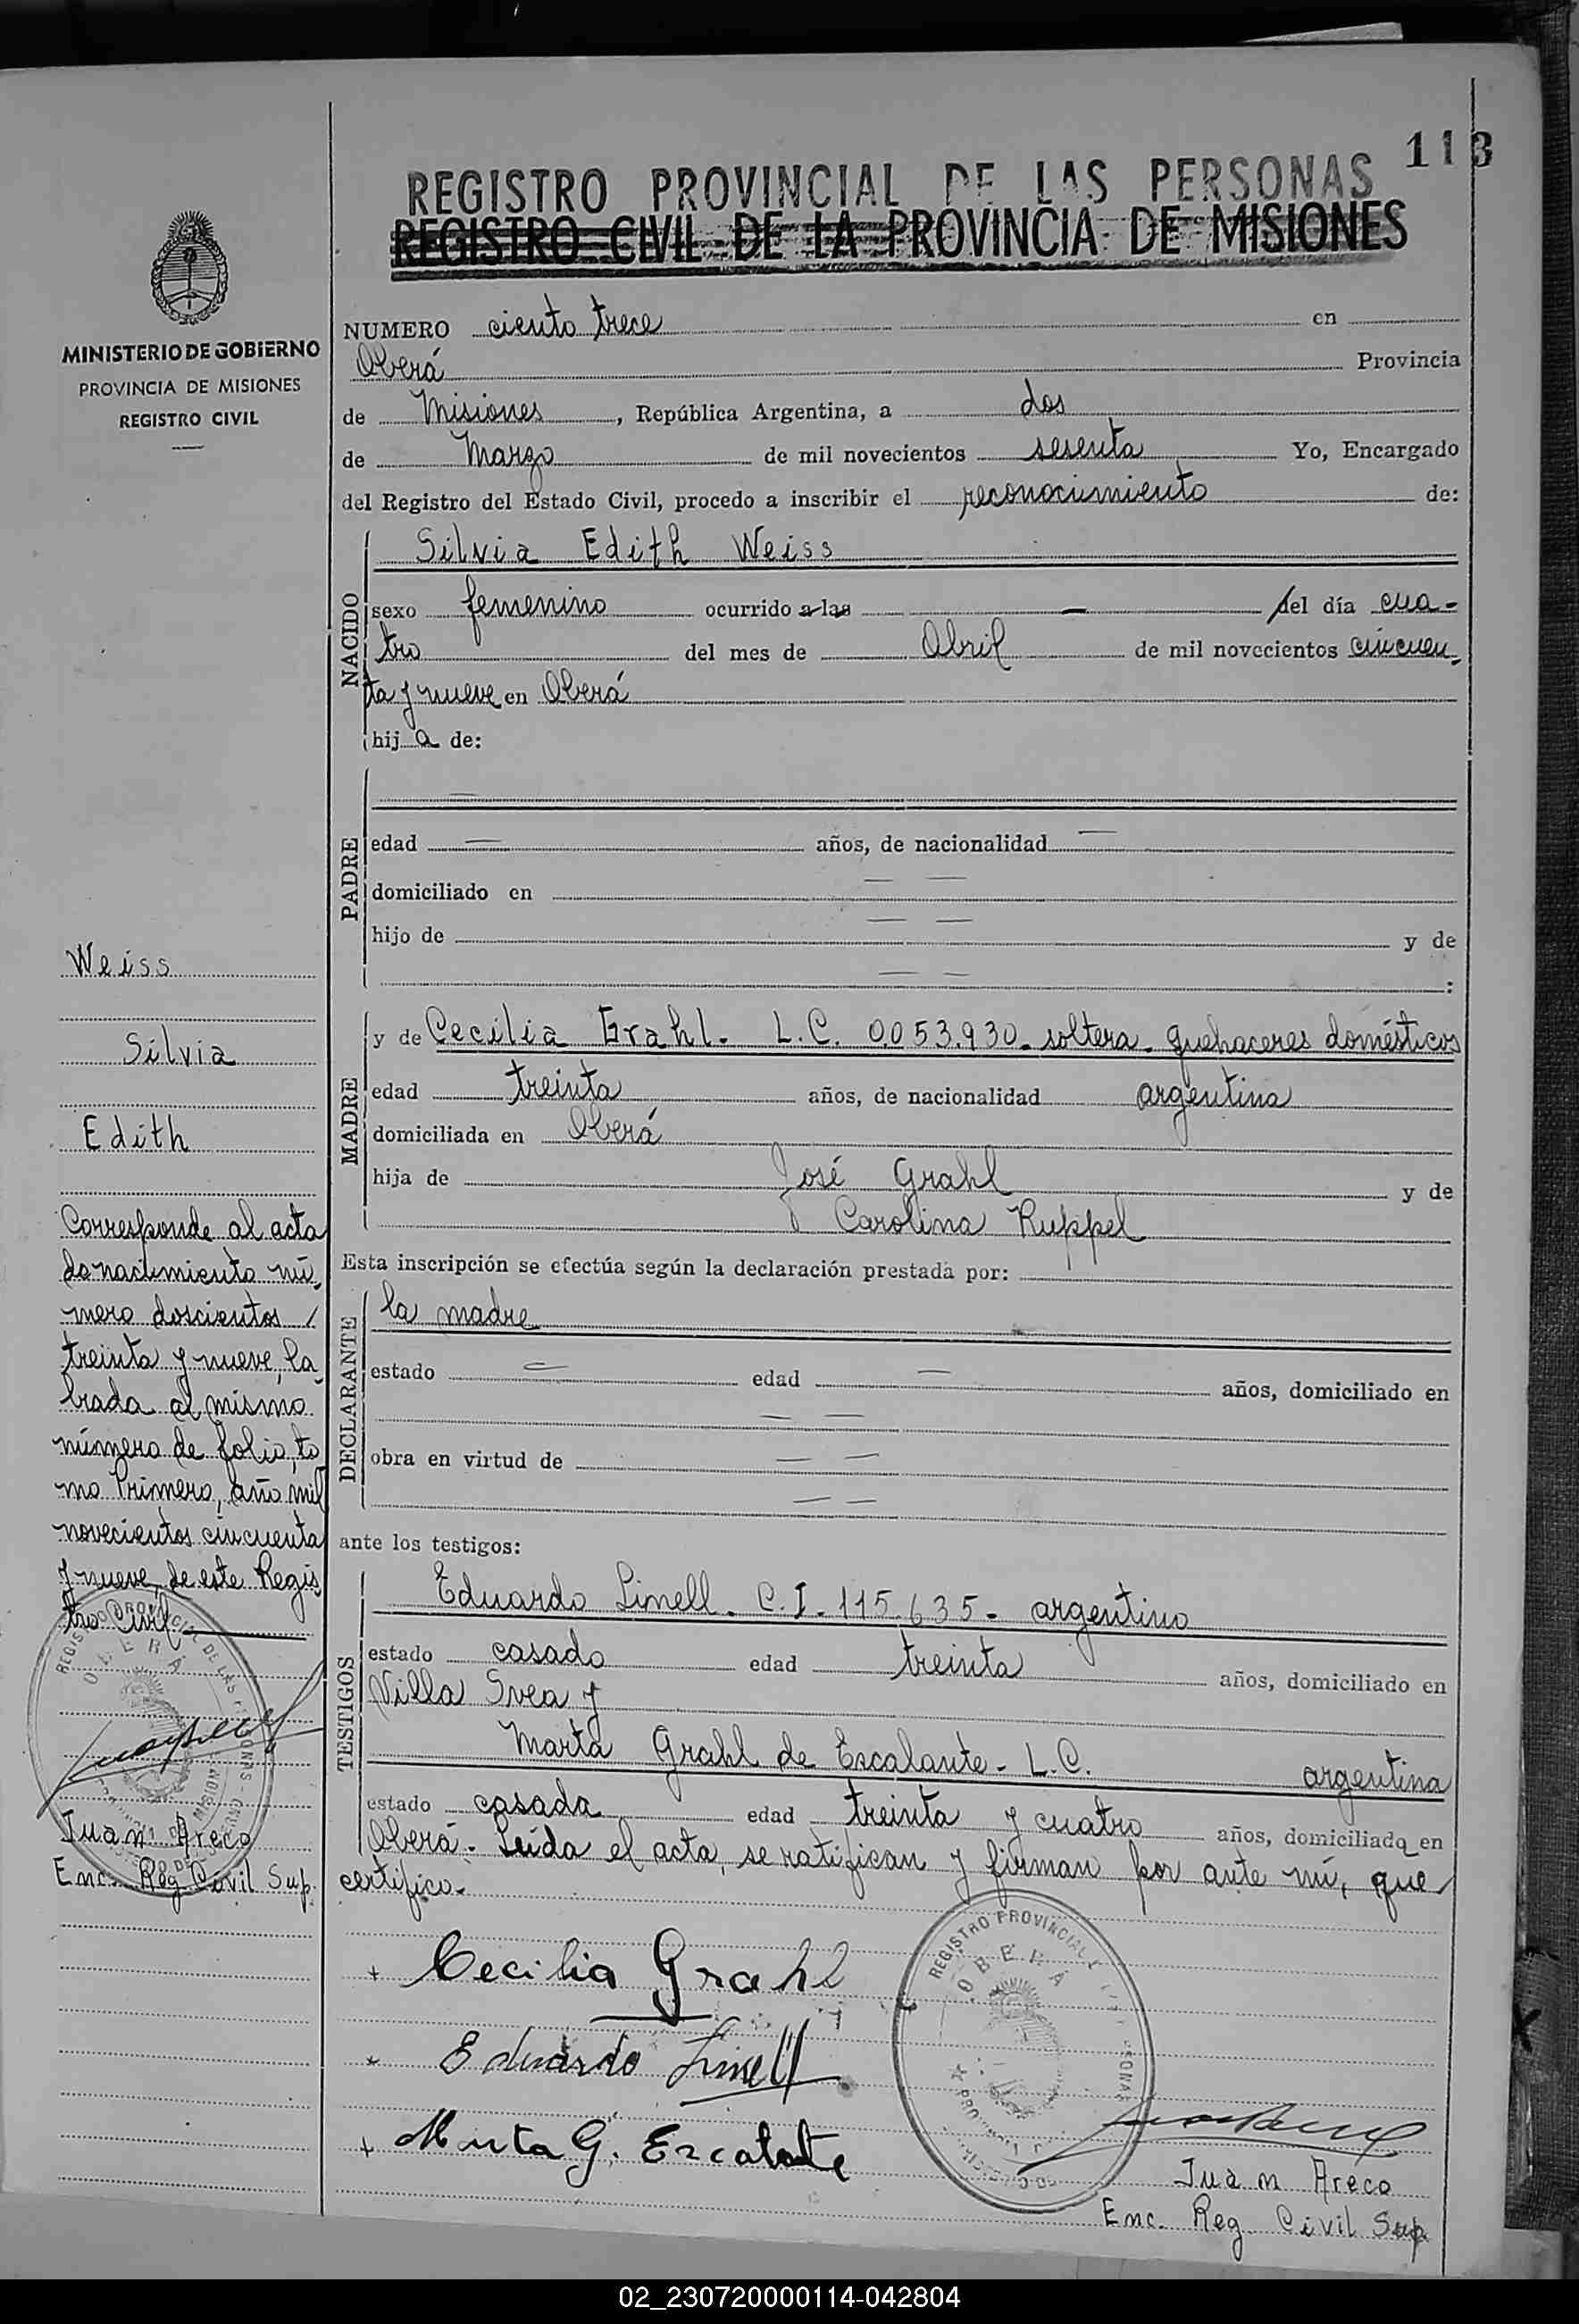 113
REGISTRO PROVINCIAL DE LAS PERSONAS
REGISTRO CIVIL DE LA PROVINCIA DE MISIONES
MINISTERIO DE GOBIERNO
PROVINCIA DE MISIONES
REGISTRO CIVIL
NUMERO ciento trece en
Oberá Provincia
de Misiones, República Argentina, a dos
de Marzo de mil novecientos sesenta Yo, Encargado
del Registro del Estado Civil, procedo a inscribir el reconocimiento de:
NACIDO
Silvia Edith Weiss
sexo femenino ocurrido a las — del día cua-
tro del mes de Abril de mil novecientos cincuen-
ta y nueve en Oberá
hija de:
PADRE
—
edad — años, de nacionalidad —
domiciliado en — —
hijo de — — y de
— — :
MADRE
y de Cecilia Grahl. L.C. 0.053.930. soltera. quehaceres domésticos
edad treinta años, de nacionalidad argentina
domiciliada en Oberá
hija de José Grahl y de
Carolina Ruppel
Esta inscripción se efectúa según la declaración prestada por:
DECLARANTE
la madre
estado — edad — años, domiciliado en
— —
obra en virtud de — —
— —
ante los testigos:
TESTIGOS
Eduardo Limell. C.I. 115.635. argentino
estado casado edad treinta años, domiciliado en
Villa Svea y
Marta Grahl de Escalante. L.C. argentina
estado casada edad treinta y cuatro años, domiciliada en
Oberá. Leída el acta, se ratifican y firman por ante mí, que
certifico.
+ Cecilia Grahl
Eduardo Limell
+ Marta G. Escalante
Juan Areco
Enc. Reg Civil Sup.
REGISTRO PROVINCIAL
OBERÁ
Weiss
Silvia
Edith
Corresponde al acta
de nacimiento nú-
mero doscientos /
treinta y nueve, la-
brada al mismo
número de folio, to
mo Primero, año mil
novecientos cincuenta
y nueve, de este Regis
tro Civil
REGISTRO PROVINCIAL DE LAS PERSONAS
OBERÁ
Juan Areco
Enc. Reg Civil Sup.
02_230720000114-042804